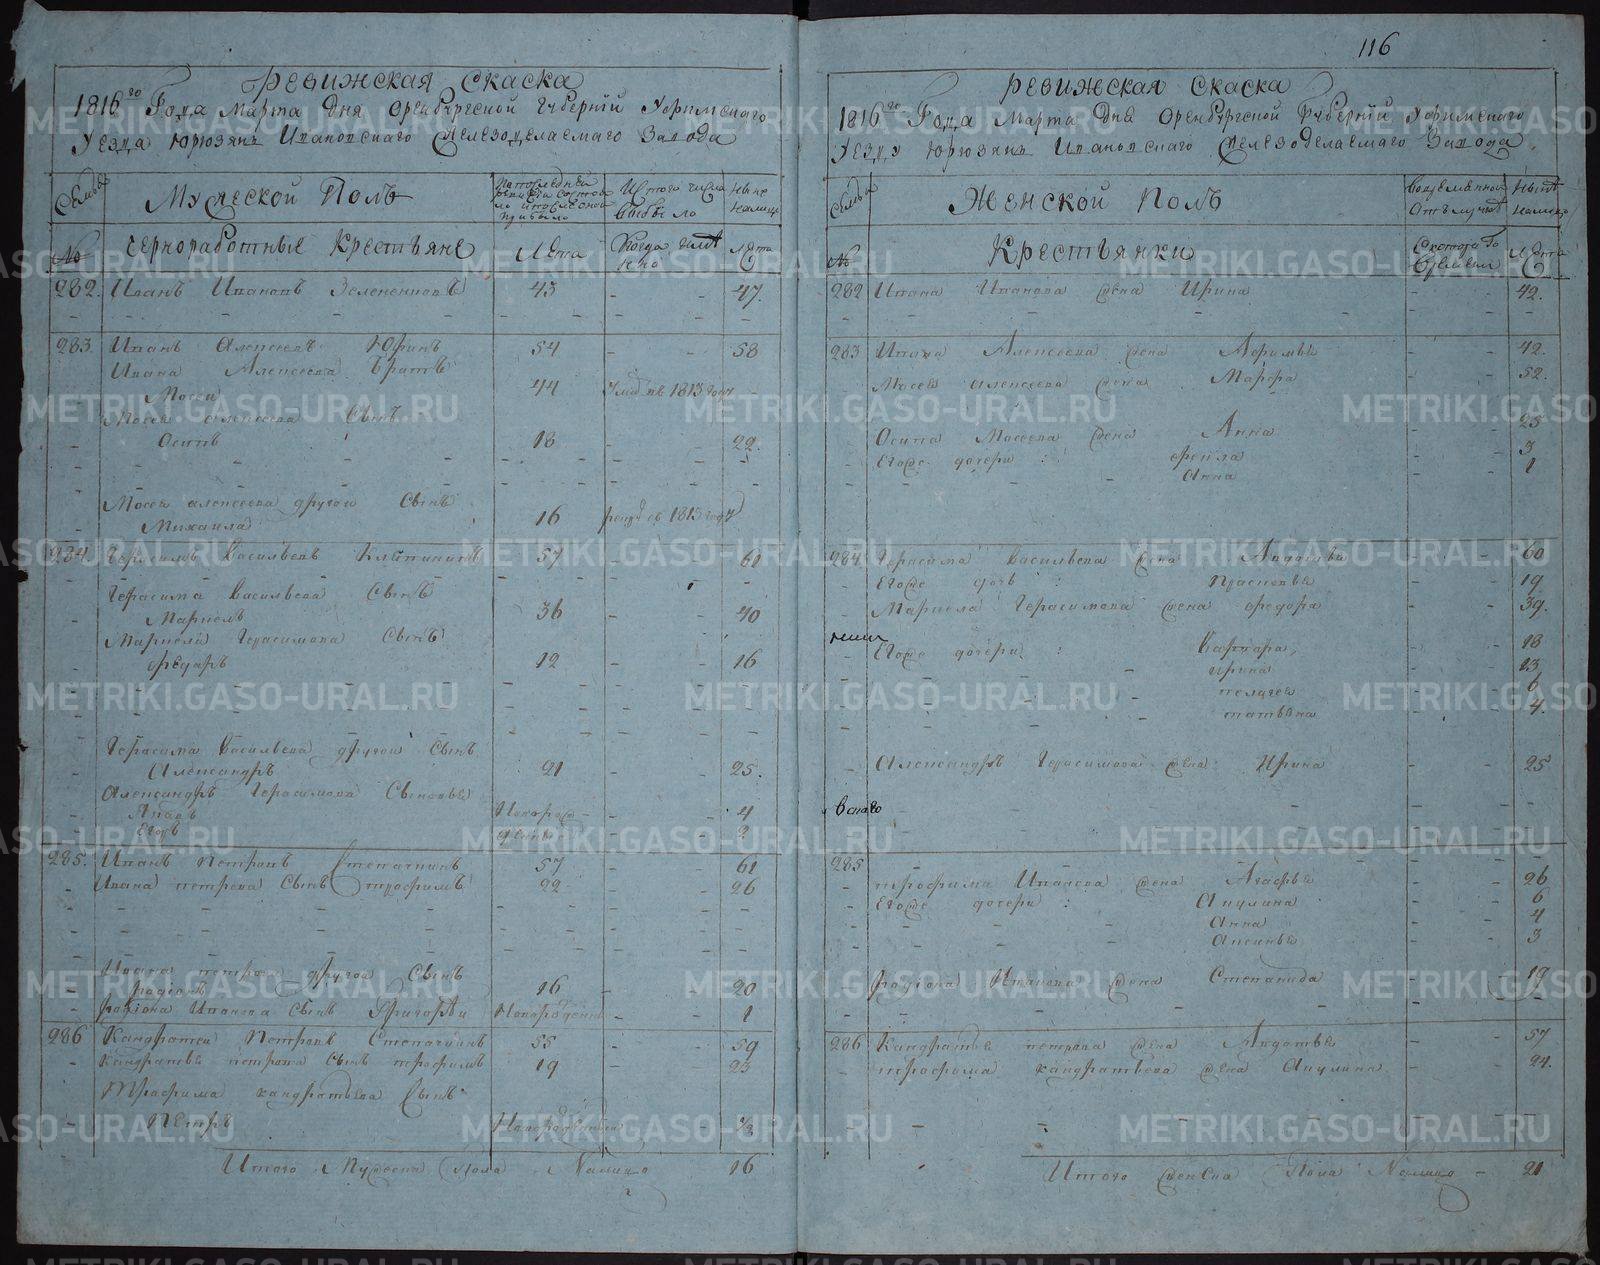 116
Ревижская Скаска
1816го Года Марта Дня Оренбургской Губернїи Уфимского
Уезда Юрюзянь Ивановскаго Железоделаемаго Завода
Семьи
Мужеской Полъ
Из того числа выбыло
Ныне налицо
№
Чернорабочные Крестьяне
Лета
Когда имянно
Лета
282. Иванъ Ивановъ 43 - - 47.
283. Иванъ Алексеевъ Юринъ 54 - - 58
Ивана Алексеева Братъ
Мосей 44 1813 году -
Мосея Алексеева Сынъ
Осипъ 18 - - 22.
Мосея Алексеева другой Сынъ
Михайла 16 1813 году
284. Герасимъ Васильевъ 57 - - 61
Герасима Васильева Сынъ
36 - - 40
Герасимова Сынъ
Федоръ 12 - - 16
Герасима Васильева другой Сынъ
Александръ 21 - - 25.
Александръ Герасимова Сыновья
4
Егоръ
285. Иванъ Петровъ 57 - - 61
Ивана Петрова Сынъ Трофимъ 22 - - 26
Ивана Петрова другой Сынъ
Радіонъ 16 - - 20
Радіона Иванова Сынъ Григорей Новорожденъ - - 1
286 Кандратей Петровъ 55 - - 59
Кандратья Петрова Сынъ Трофимъ 19 - - 23
Трофима Кандратьева Сынъ
Петръ Новорожденный
Итого Мужеска Пола Налицо 16
Ревижская Скаска
1816го Года Марта Дня Оренбургской Губернїи Уфимского
Уезду Юрюзянь Ивановскаго Железоделаемаго Завода
Семьи
Женской Полъ
Ныне налицо
№
Крестьянки
Лета
282 Ивана Иванова жена Ирина - - 42.
283 Ивана Алексеева жена - - 42.
Мосея Алексеева жена Марфа - - 52.
Осипа Мосеева жена Анна - - 25
Егоже дочери : Фекла 3
Анна 1
284 Герасима Васильева жена Авдотья - - 60
Егоже дочь : Прасковья - - 19.
Герасимова жена Федора - - 39.
Егоже дочери : Варвара, 18
Ирина 13
Пелагея 6
Татьяна 4.
Александръ Герасимова жена Ирина - - 25
285
Трофима Иванова жена Агафья - - 26
Егоже дочери : Акулина 6
Анна 4
Аксинья 3
Радіона Иванова жена Степанида - 19.
286 Кандратья Петрова жена Авдотья - - 57
Трофима Кандратьева жена Акулина - - 24.
Итого женска Пола Налицо - 21
METRIKI.GASO-URAL.RU